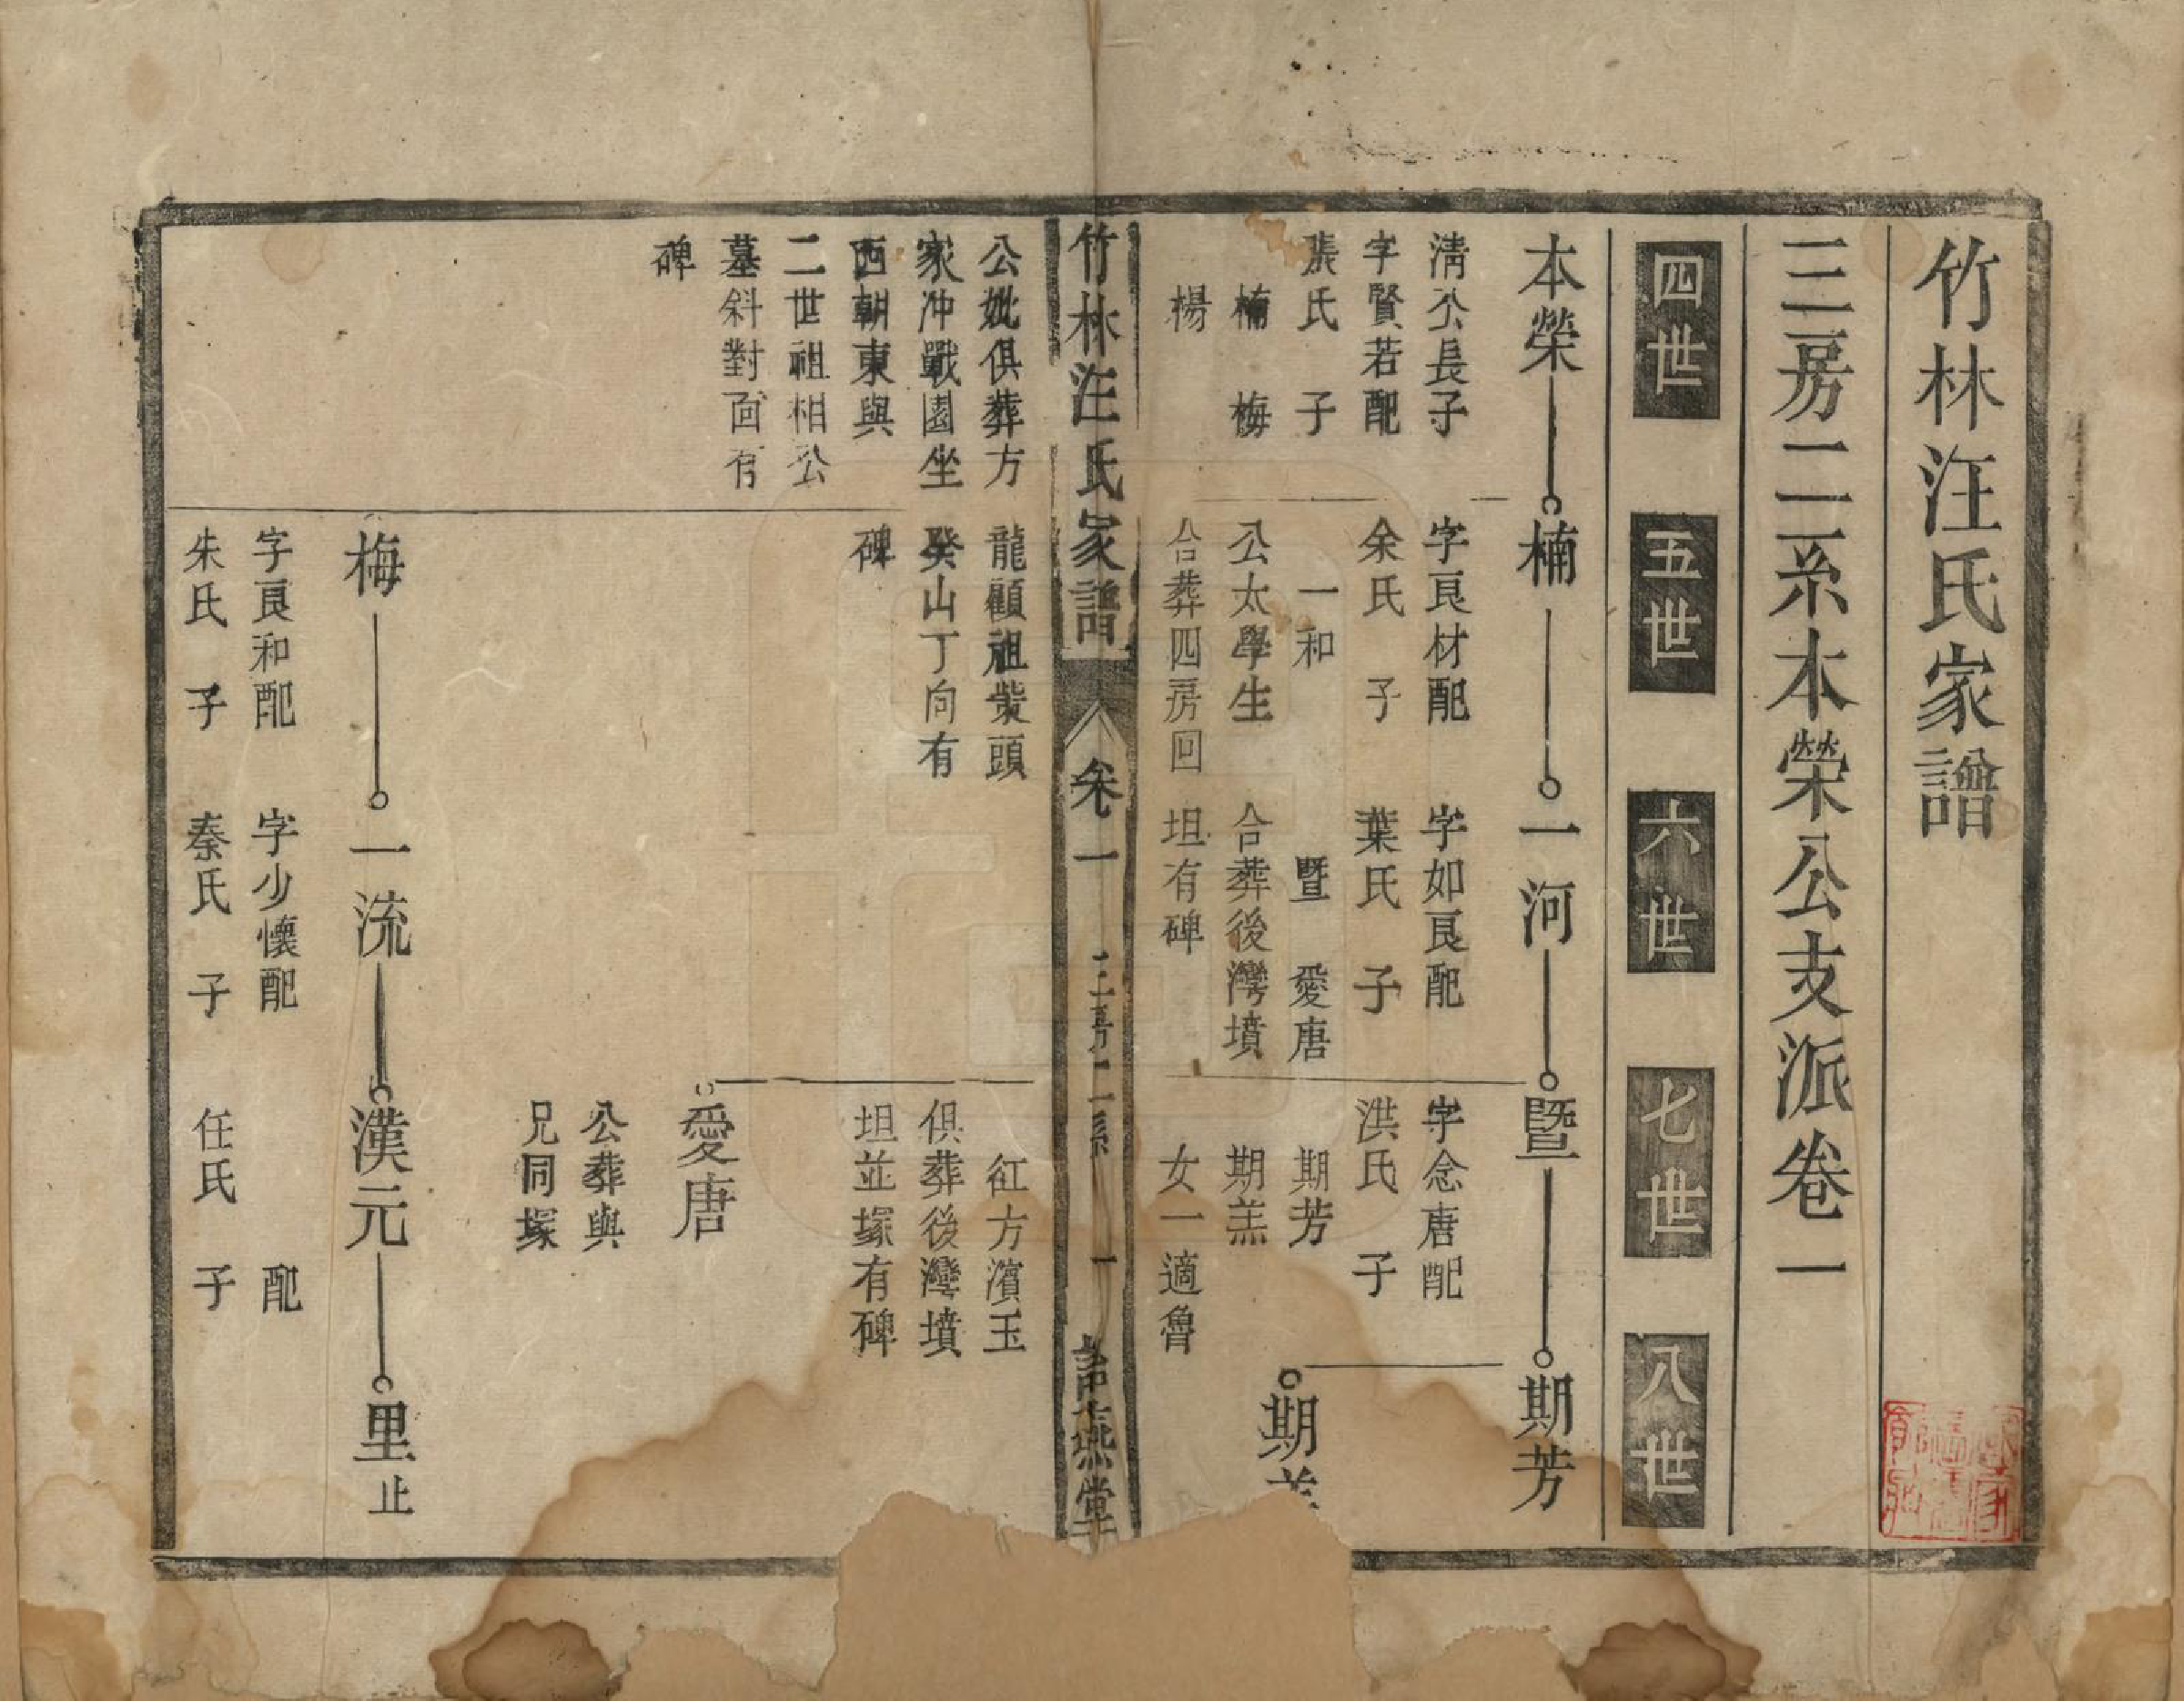 竹林汪氏家譜
三房二系本榮公支派卷一
四世
五世
六世
七世
八世
本榮
楠
一河
暨
期芳
清公長子
字賢若配
張氏 子
楠 梅
楊
字良材配
余氏 子
一和
公太學生
合葬四房回
龍顧祖紫頭
癸山丁向有
碑
字如良配
葉氏 子
暨 愛唐
合葬後灣墳
坦有碑
字念唐配
洪氏 子
期芳
期羔
女一適魯
期
竹林汪氏家譜
卷一
三房二系
一
詒燕堂
公妣俱葬方
家冲戰園坐
西朝東與
二世祖相公
墓斜對面有
碑
方濱玉
俱葬後灣墳
坦並塚有碑
愛唐
公葬與
兄同塚
梅
一流
漢元
里止
字良和配
朱氏 子
字少懷配
秦氏 子
配
任氏 子